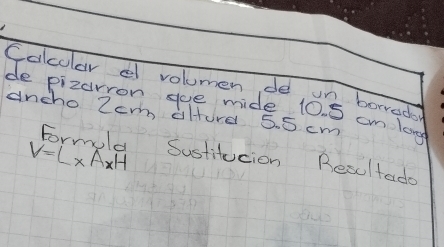 Calcular el volumen de un borrador
de pizarron que mide 10.5 cm largo
ancho 2cm, altura 5.5 cm
Formula Sustitucion Resultado
V=LxAxH